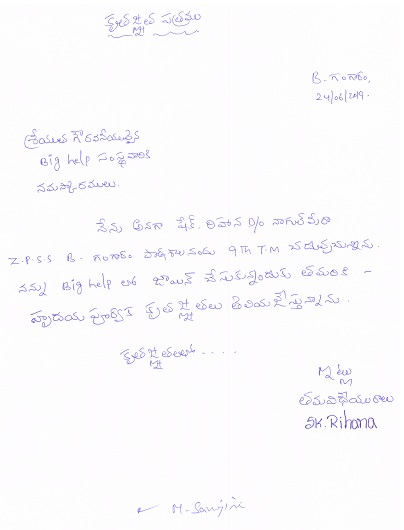 కృతజ్ఞత పత్రము
B. గంగారం,
24/06/2019.
శ్రీయుత గౌరవనీయులైన
Big help సంస్థవారికి
నమస్కారములు.
నేను అనగా షేక్. రిహాన D/o నాగుల్ మీరా
Z.P.S.S B. గంగారం పాఠశాల నందు 9th T.M చదువుచున్నాను.
నన్ను Big help లో జాయిన్ చేసుకున్నందుకు తమరికి -
హృదయ పూర్వక కృతజ్ఞతలు తెలియజేస్తున్నాను.
కృతజ్ఞతలతో ....
ఇట్లు
తమ విధేయురాలు
SK. Rihana